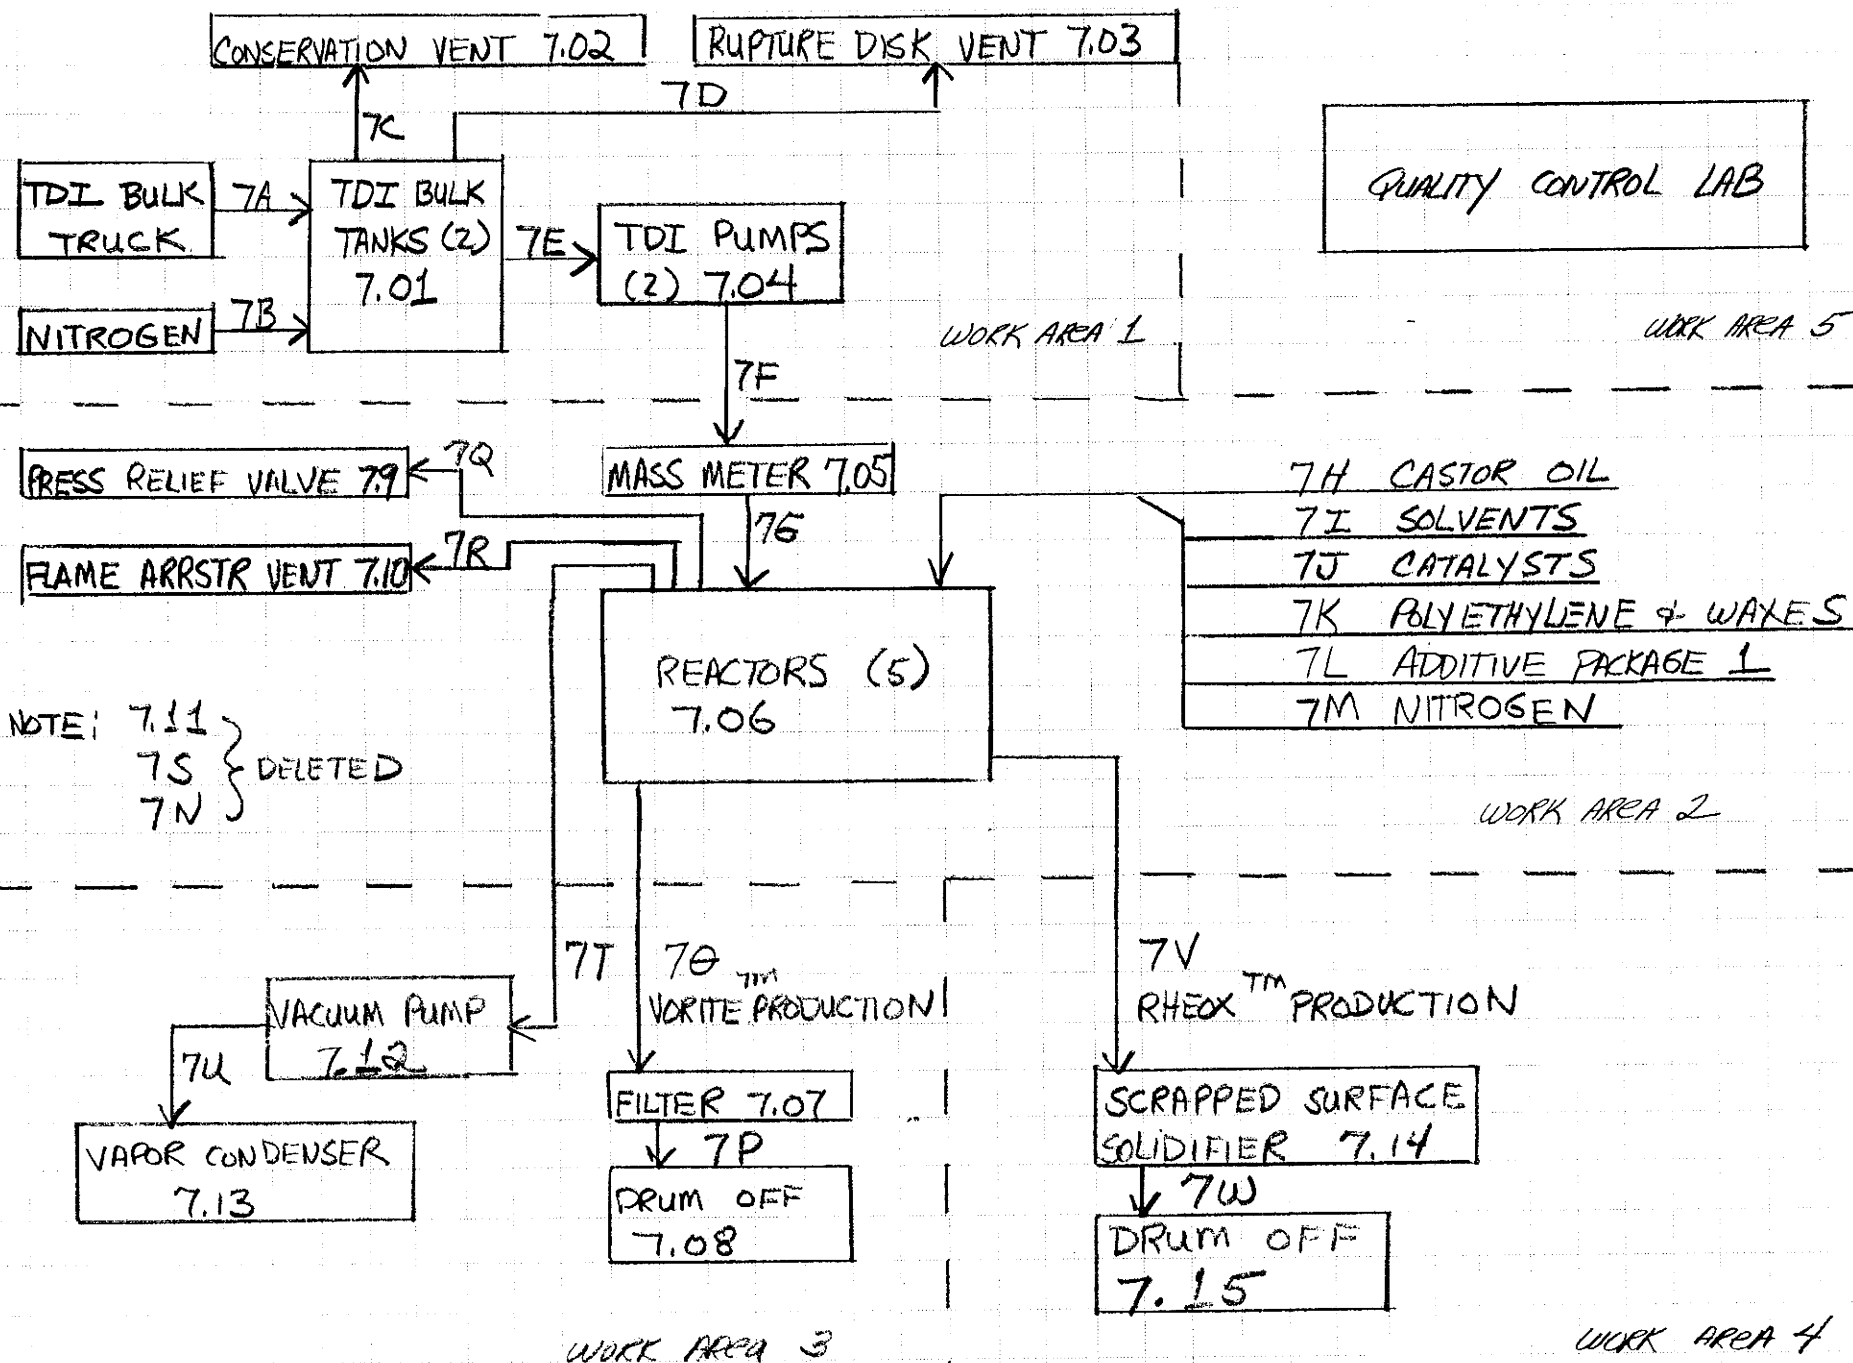 CONSERVATION VENT 7.02
RUPTURE DISK VENT 7.03
7D
7C
TDI BULK
TRUCK
7A
TDI BULK
TANKS (2)
7.01
7E
TDI PUMPS
(2) 7.04
QUALITY CONTROL LAB
NITROGEN
7B
WORK AREA 1
WORK AREA 5
7F
PRESS RELIEF VALVE 7.9
7Q
MASS METER 7.05
7G
FLAME ARRSTR VENT 7.10
7R
7H CASTOR OIL
7I SOLVENTS
7J CATALYSTS
7K POLYETHYLENE & WAXES
7L ADDITIVE PACKAGE 1
7M NITROGEN
REACTORS (5)
7.06
NOTE: 7.11
7S
7N
DELETED
WORK AREA 2
7T
7O
VORITE™ PRODUCTION
7V
RHEOX™ PRODUCTION
VACUUM PUMP
7.12
7U
VAPOR CONDENSER
7.13
FILTER 7.07
7P
DRUM OFF
7.08
SCRAPPED SURFACE
SOLIDIFIER 7.14
7W
DRUM OFF
7.15
WORK AREA 3
WORK AREA 4